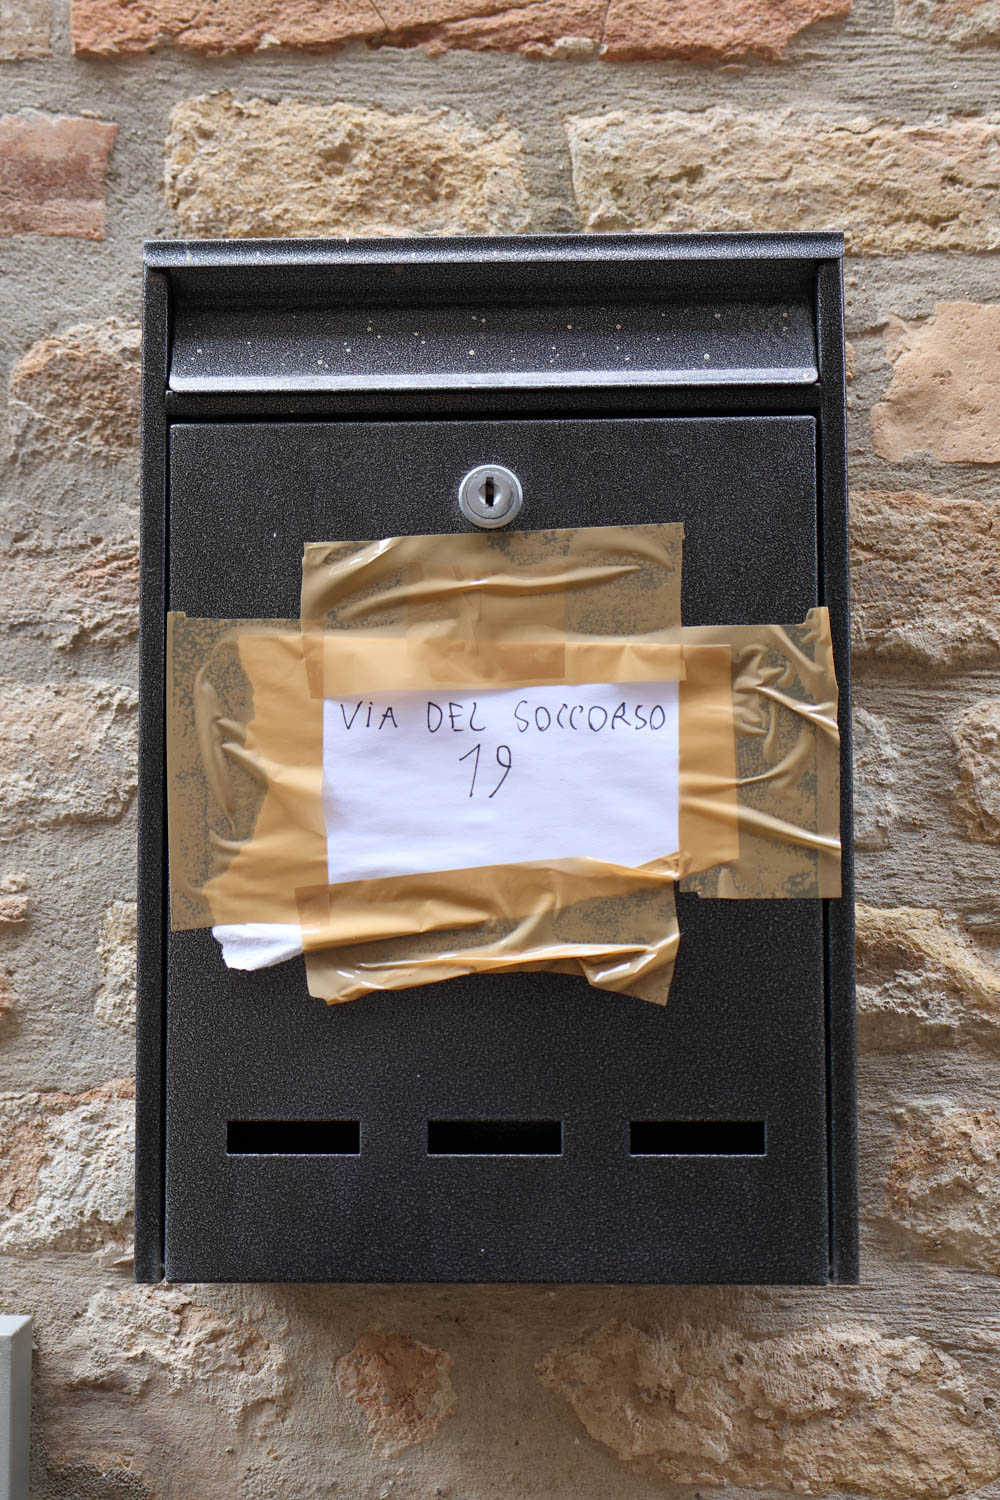 ViA DEL SOCCORSO
19